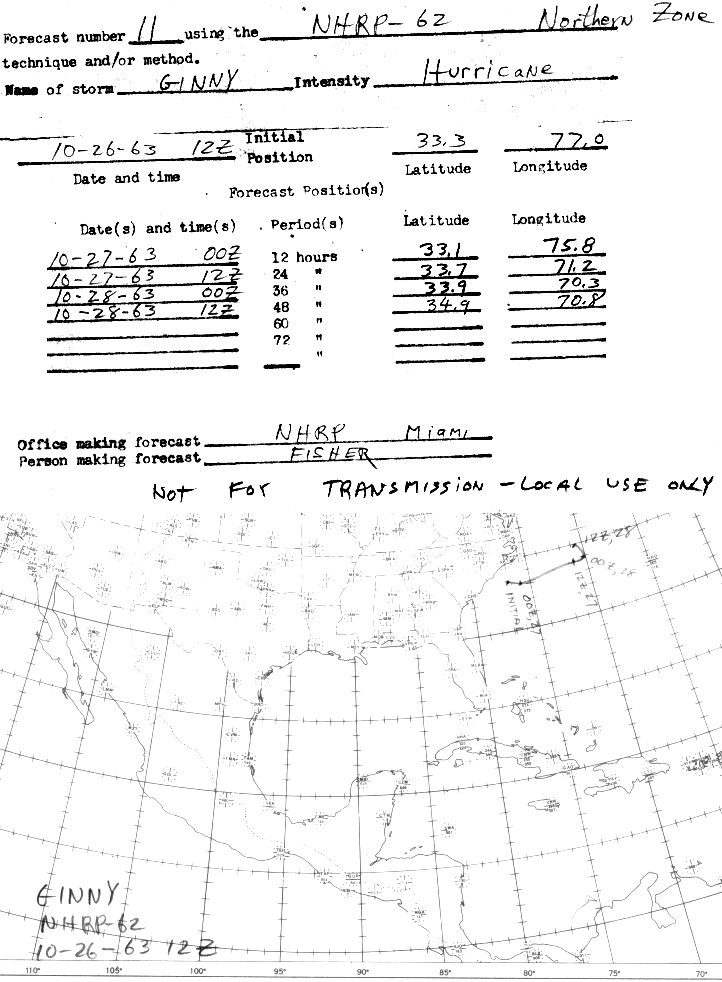 Forecast number 11 using the NHRP-62 Northern Zone
technique and/or method.
Name of storm GINNY Intensity Hurricane
10-26-63 12Z Initial Position 33.3 77.0
Date and time Latitude Longitude
Forecast Position(s)
Date(s) and time(s) Period(s) Latitude Longitude
10-27-63 00Z 12 hours 33.1 75.8
10-27-63 12Z 24 " 33.7 71.2
10-28-63 00Z 36 " 33.9 70.3
10-28-63 12Z 48 " 34.9 70.8
60 "
72 "
"
Office making forecast NHRP Miami
Person making forecast FISHER
Not For TRANSMISSION - LOCAL USE ONLY
12Z, 28
00Z, 28
12Z, 27
00Z, 27
INITIAL
GINNY
NHRP-62
10-26-63 12Z
110° 105° 100° 95° 90° 85° 80° 75° 70°